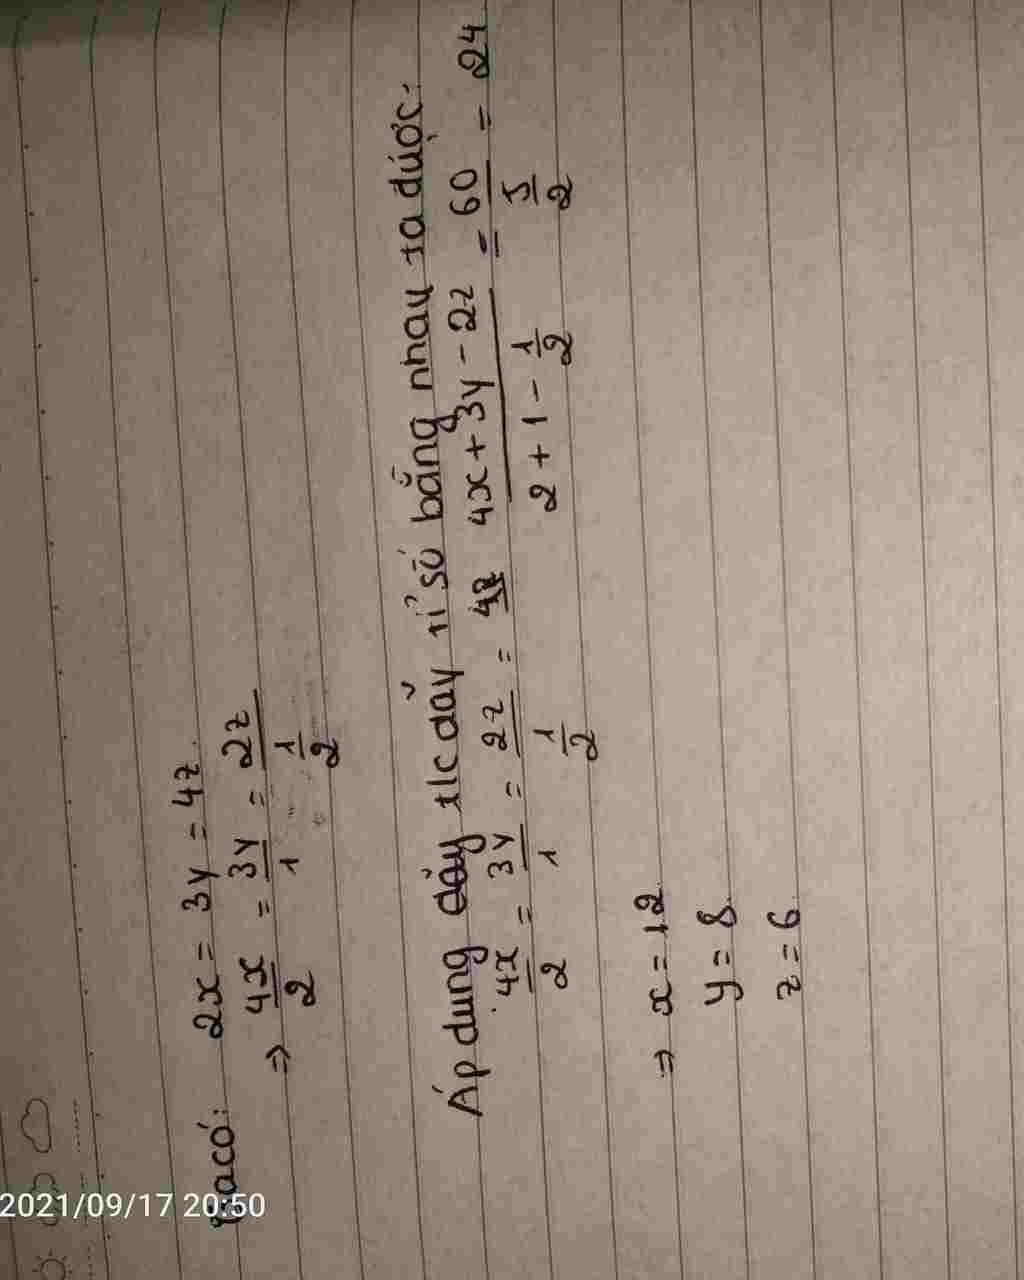 Ta có: 2x = 3y = 4z
⇒ 4x/2 = 3y/1 = 2z/(1/2)
Áp dụng dãy t/c dãy tỉ số bằng nhau ta được:
4x/2 = 3y/1 = 2z/(1/2) = (4x + 3y - 2z)/(2 + 1 - 1/2) = 60/(5/2) = 24
⇒ x = 12
y = 8
z = 6
2021/09/17 20:50